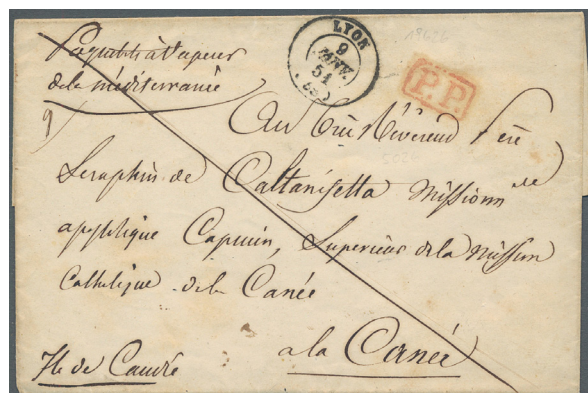 Paquebots à Vapeur
de la méditerranée
LYON
9
JANV.
51
(68)
P.P.
Au très Révérend Père
Seraphin de Caltanisetta Missionn re
apostolique Capucin, Superieur de la Mission
Catholique de la Canée
a la Canée
Ile de Candie